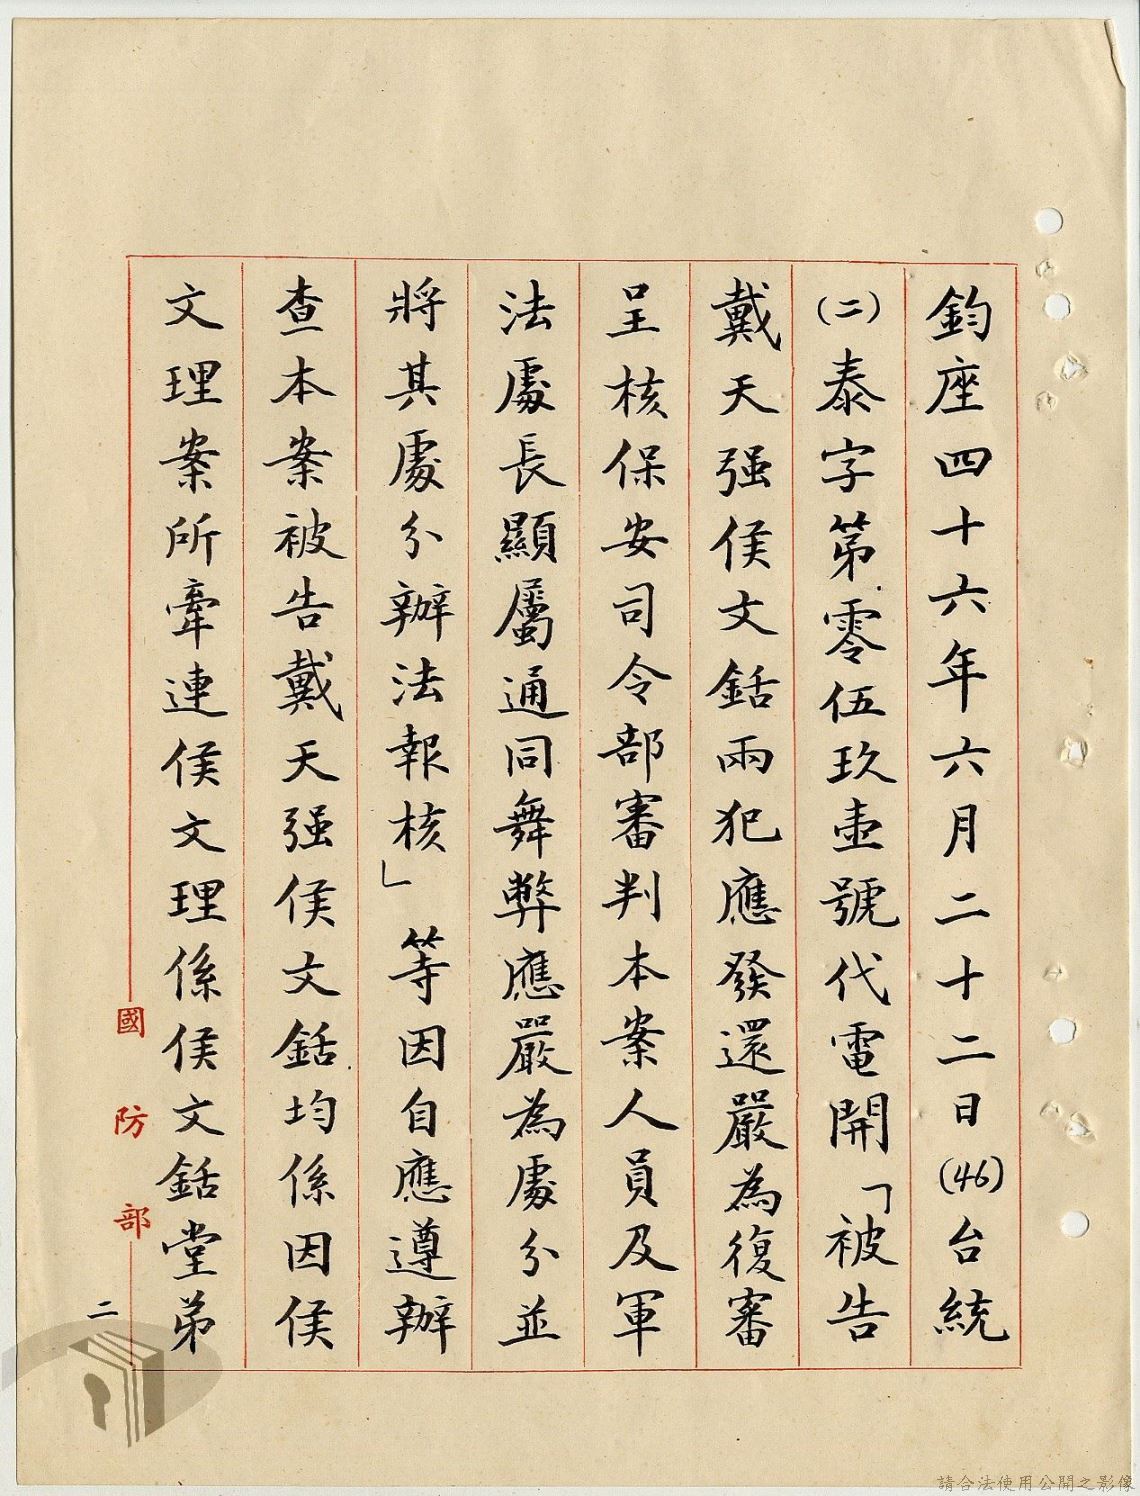 鈞座四十六年六月二十二日(46)台統
(二)泰字第零伍玖壶號代電開「被告
戴天强侯文銛兩犯應發還嚴為復審
呈核保安司令部審判本案人員及軍
法處長顯屬通同舞弊應嚴為處分並
將其處分辦法報核」等因自應遵辦
查本案被告戴天强侯文銛均係因侯
文理案所牽連侯文理係侯文銛堂弟
國防部
二
請合法使用公開之影像